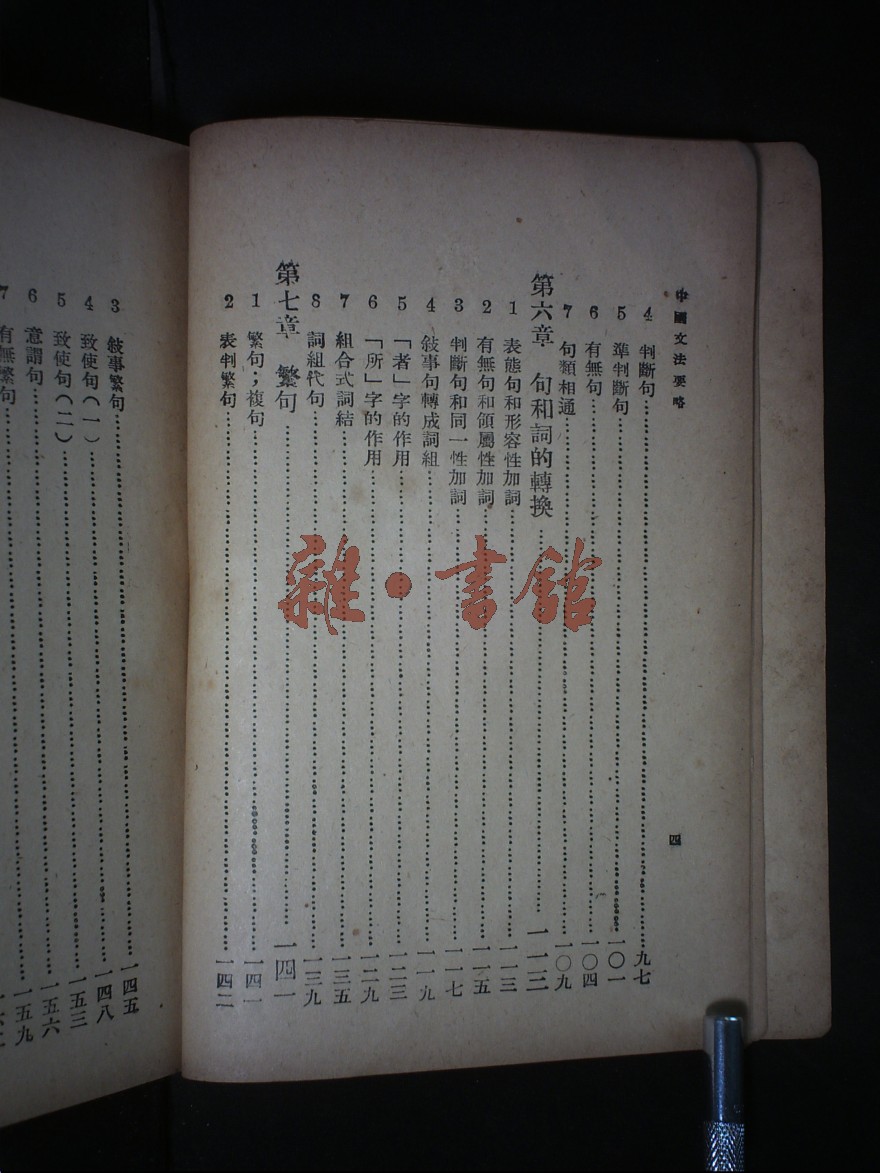 中國文法要略
四
4 判斷句……九七
5 準判斷句……一〇一
6 有無句……一〇四
7 句類相通……一〇九
第六章 句和詞的轉換……一一三
1 表態句和形容性加詞……一一三
2 有無句和領屬性加詞……一一五
3 判斷句和同一性加詞……一一七
4 敍事句轉成詞組……一一九
5 「者」字的作用……一二三
6 「所」字的作用……一二九
7 組合式詞結……一三五
8 詞組代句……一三九
第七章 繁句……一四一
1 繁句；複句……一四一
2 表判繁句……一四二
3 敍事繁句……一四五
4 致使句（一）……一四八
5 致使句（二）……一五三
6 意謂句……一五六
7 有無繁句……一五九
雜·書館